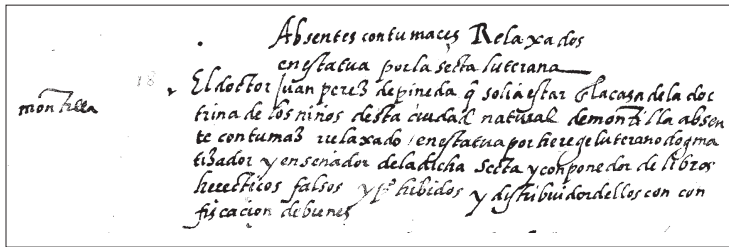 Absentes contumaces Relaxados
en estatua por la secta luterana
montilla
18
El doctor Juan perez de pineda q solia estar en la casa de la doc
trina de los niños desta ciudad natural de montilla absen
te contumaz relaxado en estatua por herege luterano dogma
tizador y enseñador de la dicha secta y conponedor de libros
hereticos falsos y phibidos y distribuidor dellos con con
fiscacion de bienes